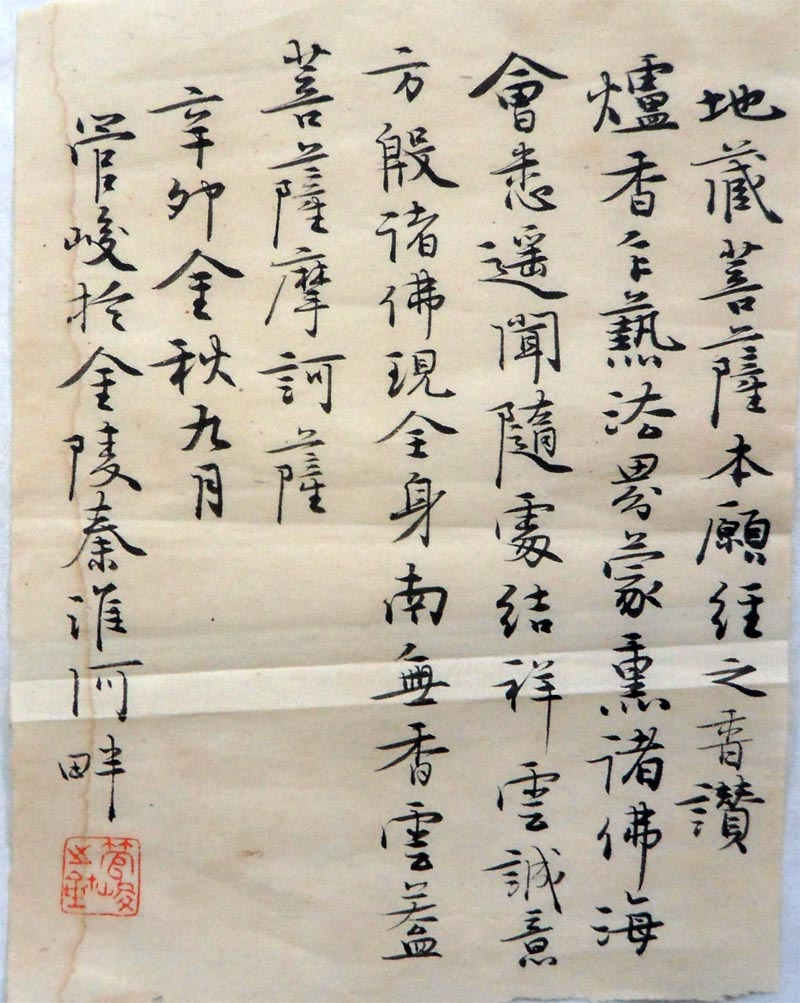 地藏菩薩本願經之香讚
爐香乍爇法界蒙熏諸佛海
會悉遥聞隨處結祥雲誠意
方殷諸佛現全身南無香雲蓋
菩薩摩訶薩
辛卯金秋九月
管峻於金陵秦淮河畔
管峻之璽